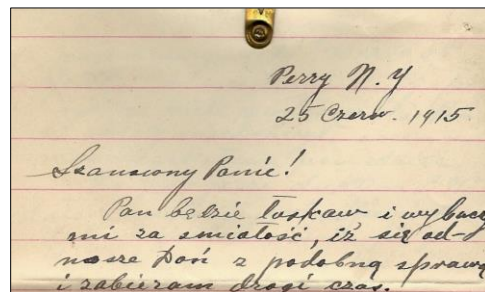 Perry N. Y
25 Czerw. 1915
Szanowny Panie!
Pan będzie łaskaw i wybacz
mi za śmiałość, iż się od-
noszę Doń z podobną sprawą
i zabieram drogi czas.